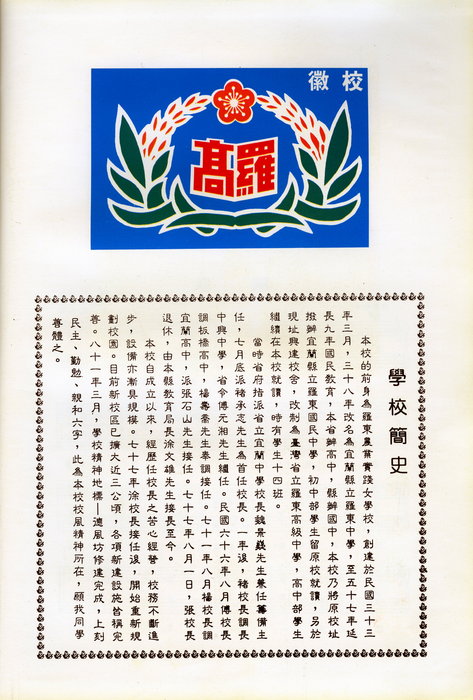 校徽
羅高
學校簡史
本校的前身為羅東農業實踐女學校，創建於民國三十三
年三月，三十八年改名為宜蘭縣立羅東中學，至五十七年延
長九年國民教育，本省辦高中，縣辦國中，本校乃將原校址
撥辦宜蘭縣立羅東國民中學，初中部學生留原校就讀，另於
現址興建校舍，改制為臺灣省立羅東高級中學，高中部學生
繼續在本校就讀，時有學生十四班。
當時省府指派省立宜蘭中學校長魏景嶷先生兼任籌備主
任，七月底派褚承志先生為首任校長。一年後，褚校長調長
中興中學，省令傅元湘先生繼任。民國六十六年八月傅校長
調板橋高中，楊壽喬先生奉調接任。七十一年八月楊校長調
宜蘭高中，派張石山先生接任。七十七年八月一日，張校長
退休，由本縣教育局長徐文雄先生接長至今。
本校自成立以來，經歷任校長之苦心經營，校務不斷進
步，設備亦漸具規模。七十七年徐校長接任後，開始重新規
劃校園。目前新校區已擴大近三公頃，各項新建設施皆稱完
善。八十一年三月，學校精神地標—德風坊修建完成，上刻
民主、勤勉、親和六字，此為本校校風精神所在，願我同學
善體之。